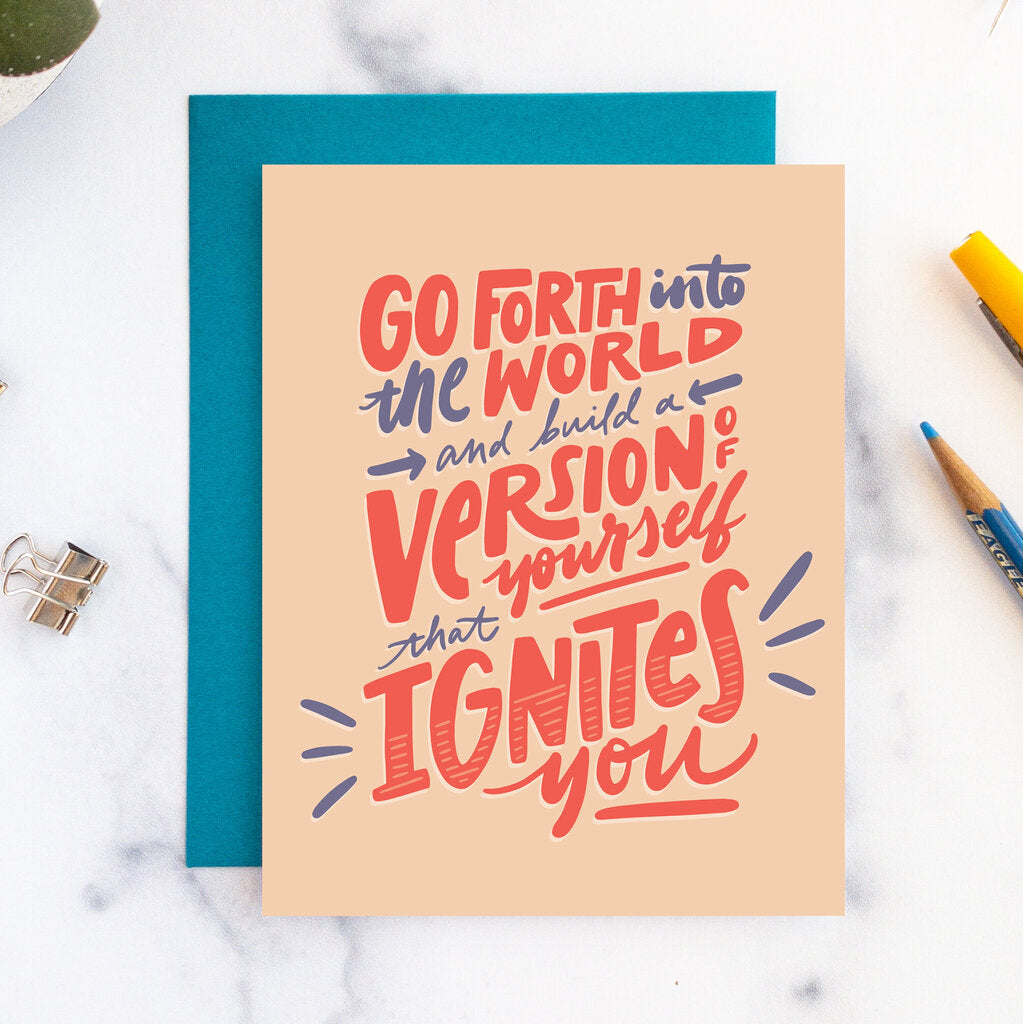 GO FORTH into
the WORLD
and build a
VERSION OF
yourself
that
IGNITES
you
EAGLE